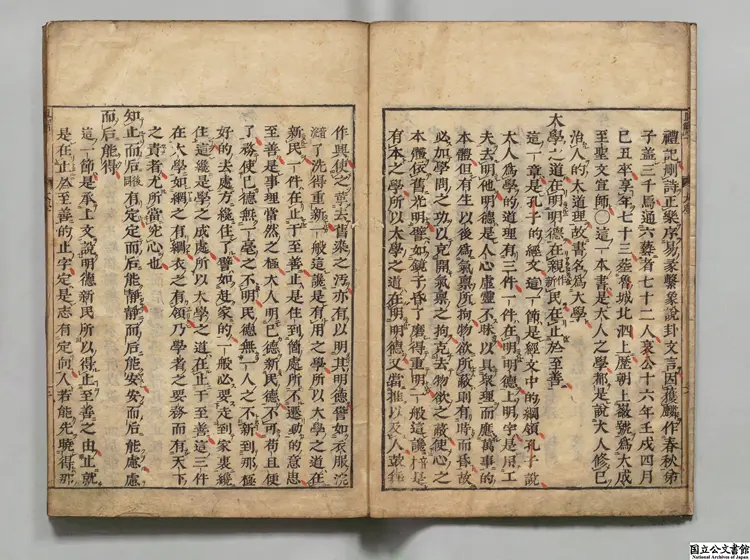 禮記刪詩正樂序易彖繫象說卦文言因獲麟作春秋弟
子蓋三千焉通六藝者七十二人哀公十六年壬戌四月
已丑卒享年七十三葬魯城北泗上歷朝上徽號為大成
至聖文宣師〇這一本書是大人之學都是說大人修己
治人的大道理故書名為大學
大學之道在明明德在親新民在止於至善
這一章是孔子的經文這一節是經文中的綱領孔子說
大人為學的道理有三件一件在明明德上明字是用工
夫去明他明德是人心虛靈不昧以具衆理而應萬事的
本體但有生以後為氣稟所拘物欲所蔽則有時而昏故
必加學問之功以克開氣稟之拘克去物欲之蔽使心之
本體依舊光明譬如鏡子昏了磨得重明一般這纔是
有本之學所以大學之道在明明德又當推以及人鼓舞
作興使之革去舊染之污亦有以明其明德譬如衣服洗
滌了洗得重新一般這纔是有用之學所以大學之道在
新民一件在止于至善止是住到箇處所不遷動的意思
至善是事理當然之極大人明己德新民德不可苟且便
了務使己德無一毫之不明民德無一人之不新到那極
好的去處方纔住了譬如赴家的一般必要走到家裏纔
住這纔是學之成處所以大學之道在止于至善這三件
在大學如網之有綱衣之有領乃學者之要務而有天下
之責者尤所當究心也
知止而后有定定而后能靜靜而后能安安而后能慮慮
而后能得
這一節是承上文說明德新民所以得止至善之由止就
是在止於至善的止字定是志有定向人若能先曉得那
国立公文書館
National Archives of Japan